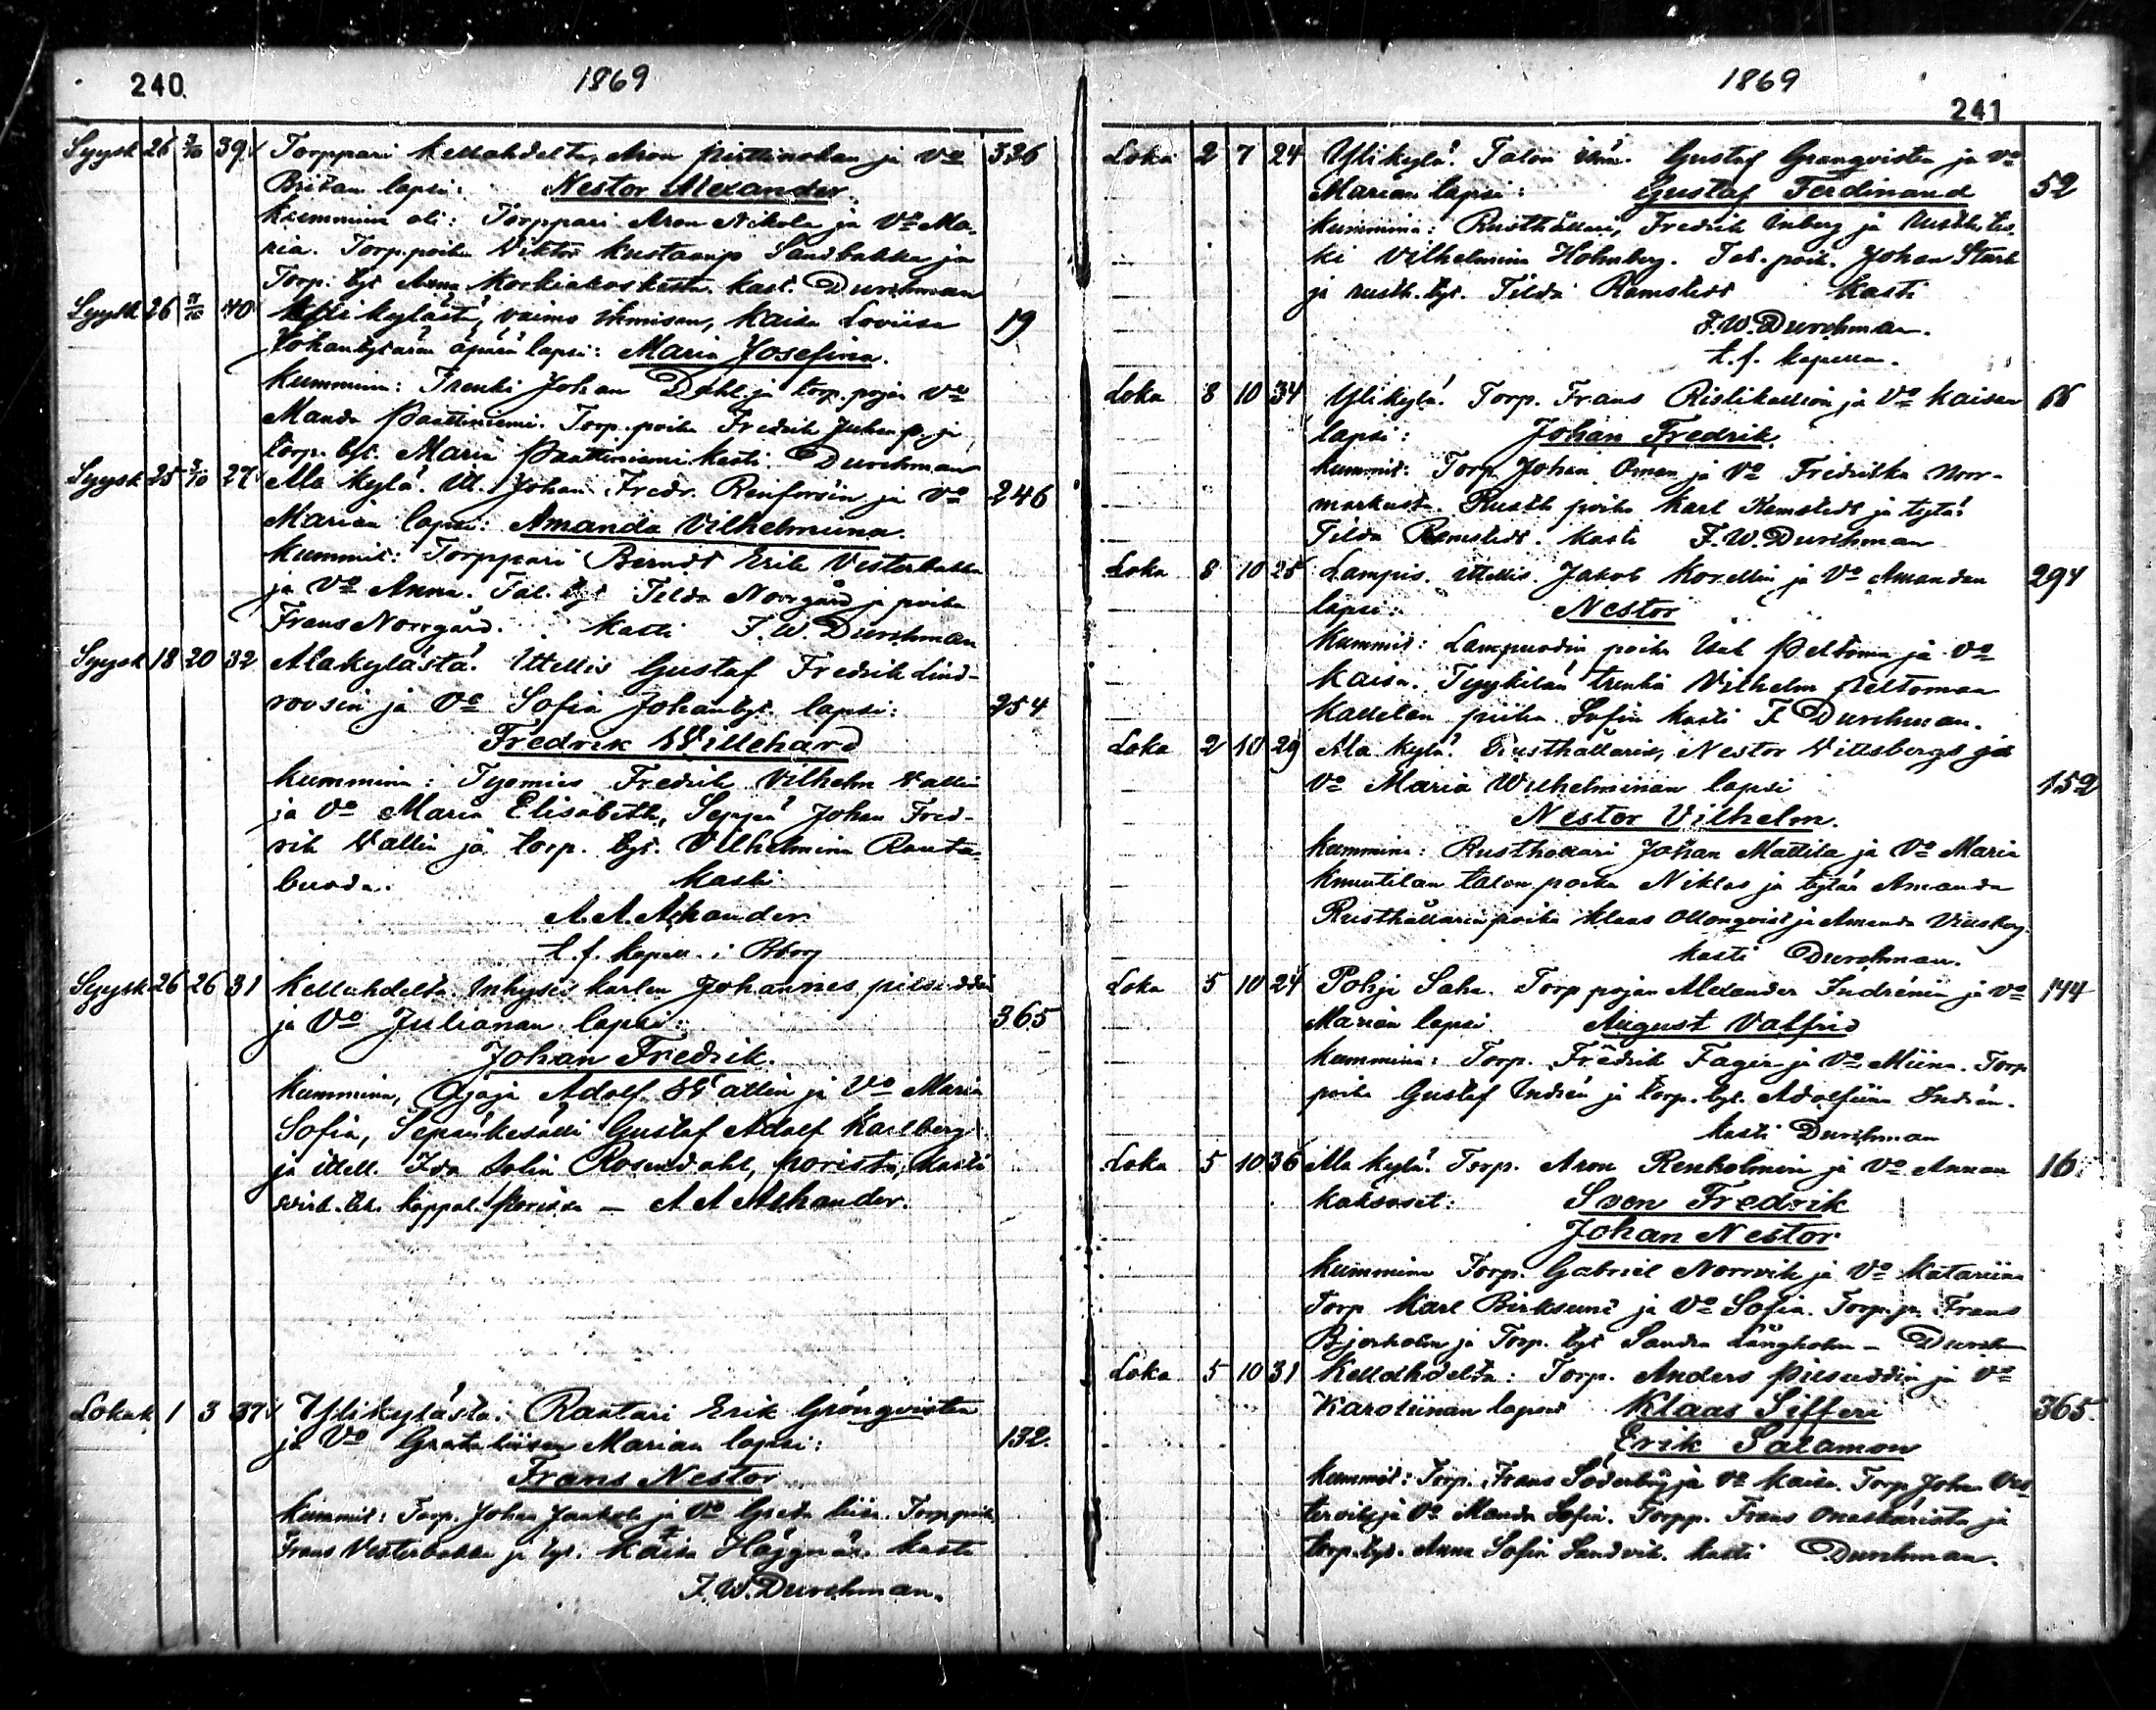 240
1869
Syysk 26 3/10 39 Torppari Kellahdelta, Aron Pirttinokan ja Vo 336
Britan lapsi: Nestor Alexander.
Kummina oli: Torppari Aron Nikola ja Vo Ma-
ria. Torp. poika Viktor Kustaanp Sandbakka ja
Torp. tyt Anna Korkiakoskesta. Kast. Durchman
Syysk 26 3/10 40 Ylikylästä, vaimo ihmisen, Kaisa Loviisa 19
Johantyttären äpärä lapsi: Maria Josefina.
Kummina: Trenki Johan Dahl ja torp. pojan Vo
Manda Paattiniemi. Torp. poika Fredrik Juhanp. ja
torp. tyt. Maria Paattiniemi Kasti Durchman
Syysk 25 3/10 27 Ala kylä. Itl. Johan Fredr. Renforsin ja Vo 246
Marian lapsi: Amanda Vilhelmiina.
Kummit: Torppari Berndt Erik Vesterbakka
ja Vo Anna. Tal. tyt Tilda Norrgård ja poika
Frans Norrgård. Kasti F. W. Durchman
Syysk 18 20 32 Alakylästä. Ittellis Gustaf Fredrik Lind-
roosin ja Vo Sofia Johantyt. lapsi: 254
Fredrik Willehard
Kummina: Tyomies Fredrik Vilhelm Vallin
ja Vo Maria Elisabeth, Seppä Johan Fred-
rik Vallin ja torp. tyt. Vilhelmina Rauta
buoda. Kasti
A. A. Ahander
t. f. Kapell. i Bborg
Syysk 26 26 31 Kellahdelta Inhysis karlen Johannes
ja Vo Julianan lapsi: 365
Johan Fredrik.
Kummina, Ajaja Adolf Wallin ja Vo Maria
Sofia, Sepänkesälli Gustaf Adolf Karlberg
ja ittell. Ida Rosendahl, Porista, Kasti
virk. tek. Kappal. Porissa — A A Ahander.
Lokak 1 3 37 Ylikylästä. Rantari Erik Grönqvistin
ja Vo Greta Liisan Marian lapsi: 132.
Frans Nestor
Kummit: Torp. Johan ja Vo Greeta Liisa. Torp poik
Frans Vesterbakka ja tyt. Kaisa Höggnär. Kasti
F. W. Durchman.
1869
241
Loka 2 7 24 Ylikylä. Talon isän. Gustaf Granqvistin ja Vo
Marian lapsi: Gustaf Ferdinand 52
Kummina: Rusthållari, Fredrik Inberg ja rusth. les
ki Vilhelmina Holmberg. Tal. poik. Johan Stark
ja rusth. tyt. Tilda Ramstedt Kasti
F. W. Durchman.
t. f. kapellan.
Loka 8 10 34 Ylikylä. Torp. Frans Ristikallion ja Vo Kaisan 66
lapsi: Johan Fredrik.
Kummit: Torp. Johan Oman ja Vo Fredrika Norr-
markusta. Rusth poika Karl Ramstedt ja tytär
Tilda Ramstedt. Kasti F. W. Durchman
Loka 8 10 25 Lampis. Ittellis. Jakob Korellin ja Vo Amandan 294
lapsi: Nestor
Kummit: Lampuodin poika Isak Peltoma ja Vo
Kaisa. Tyykilän trenki Vilhelm Peltoman
Kallelan piika Sofia Kasti F Durchman.
Loka 2 10 29 Ala kylä. Rusthållarin, Nestor Villsbergs ja
Vo Maria Wilhelminan lapsi 152
Nestor Vilhelm.
Kummina: Rusthollari Johan Mattila ja Vo Maria
Knuutilan talon poika Niklas ja tytär Amanda
Rusthållarin poika Klaas Ollonqvist ja Amanda Villsberg.
Kasti Durchman.
Loka 5 10 24 Pohja Saha. Torp pojan Alexander Indrénin ja Vo 144
Marian lapsi August Valfrid
Kummina: Torp. Fredrik Fager ja Vo Miina. Torp
poika Gustaf Indrén ja torp. tyt. Adolfiina Indrén.
Kasti Durchman
Loka 5 10 36 Ala kylä. Torp. Aron Renholmin ja Vo Annan 16
kaksoset: Sven Fredrik
Johan Nestor
Kummina Torp. Gabriel Norrvik ja Vo Katariina
Torp Karl Birksund ja Vo Sofia. Torp. p. Frans
Bjorkholm ja Torp. tyt Sandra Långholm – Durchm
Loka 5 10 31 Kellahdelta: Torp. Anders ja Vo
Karoliinan lapset Klaas Siffere 365.
Erik Salamon
Kummit: Torp. Frans Söderby ja Vo Kaisa. Torp Johan Ves
tervik ja Vo Manda Sofia. Torpp. Frans Onaskärista ja
torp. tyt. Anna Sofia Sandvik. Kasti Durchman.